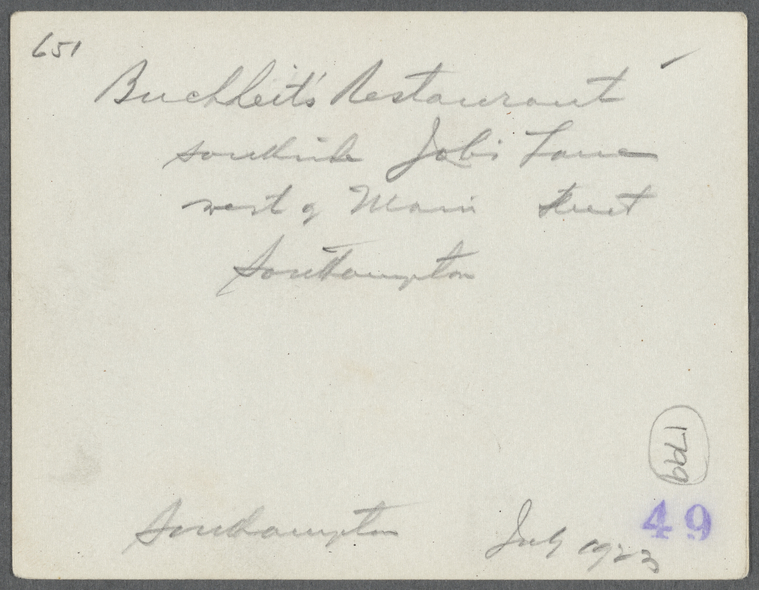 651
Buchheit's Restaurant
southside Job's Lane
west of Main Street
Southampton
1799
49
Southampton July 1923